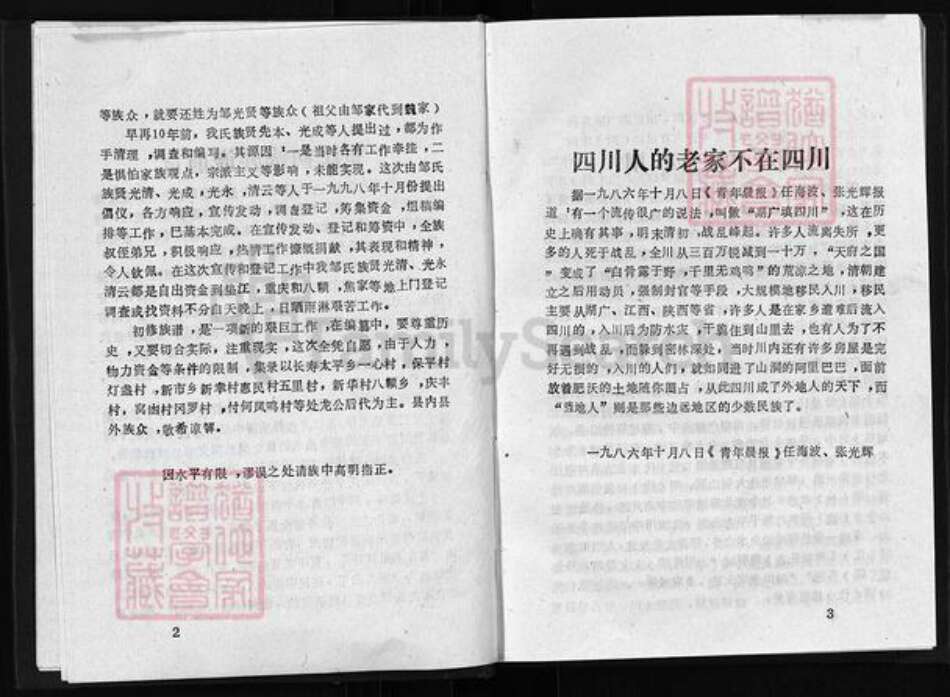 等族众，就要还姓为邹光贤等族众（祖父由邹家代到魏家）
早再10年前，我氏族贤先本、光成等人提出过，都为作
手清理，调查和编写。其源因：一是当时各有工作牵挂，二
是惧怕家族观点，宗派主义等影响，未能实现。这次由邹氏
族贤光清、光成，光水，清云等人于一九九八年十月份提出
倡仪，各方响应，宣传发动，调查登记，筹集资金，组稿编
排等工作，已基本完成。在宣传发动、登记和筹资中，全族
叔侄弟兄，积极响应，热情工作慷慨捐献，其表现和精神，
令人钦佩。在这次宣传和登记工作中我邹氏族贤光清、光永
清云都是自出资金到垫江，重庆和八颗，焦家等地上门登记
调查或找资料不分白天晚上，日晒雨淋艰苦工作。
初修族谱，是一项新的艰巨工作，在编篡中，要尊重历
史，又要切合实际，注重现实，这次全凭自愿，由于人力，
物力资金等条件的限制，集录以长寿太平乡一心村，保平村
灯盏村，新市乡新拳村惠民村五里村，新华村八颗乡，庆丰
村，窝凼村冈罗村，付何凤鸣村等处龙公后代为主。县内县
外族众，敬希谅解。
因水平有限，谬误之处请族中高明指正。
2
猶他家
譜學會
收藏
四川人的老家不在四川
据一九八六年十月八日《青年晨报》任海波、张光辉报
道：有一个流传很广的说法，叫做“湖广填四川”，这在历
史上确有其事，明末清初，战乱峰起。许多人流离失所，更
多的人死于战乱，全川从三百万锐减到一十万，“天府之国
”变成了“白骨露于野，千里无鸡鸣”的荒凉之地，清朝建
立之后用动员，强制封官等手段，大规模地移民入川，移民
主要从湖广、江西、陕西等省，许多人是在家乡遭难后流入
四川的，入川后为防水灾，干脆住到山里去，也有人为了不
再遇到战乱，而躲到密林深处，当时川内还有许多房屋是完
好无损的，入川的人们，就如同进了山洞的阿里巴巴，面前
放着肥沃的土地随你圈占，从此四川成了外地人的天下，而
“当地人”则是那些边远地区的少数民族了。
一九八六年十月八日《青年晨报》任海波、张光辉
3
猶他家
譜學會
收藏